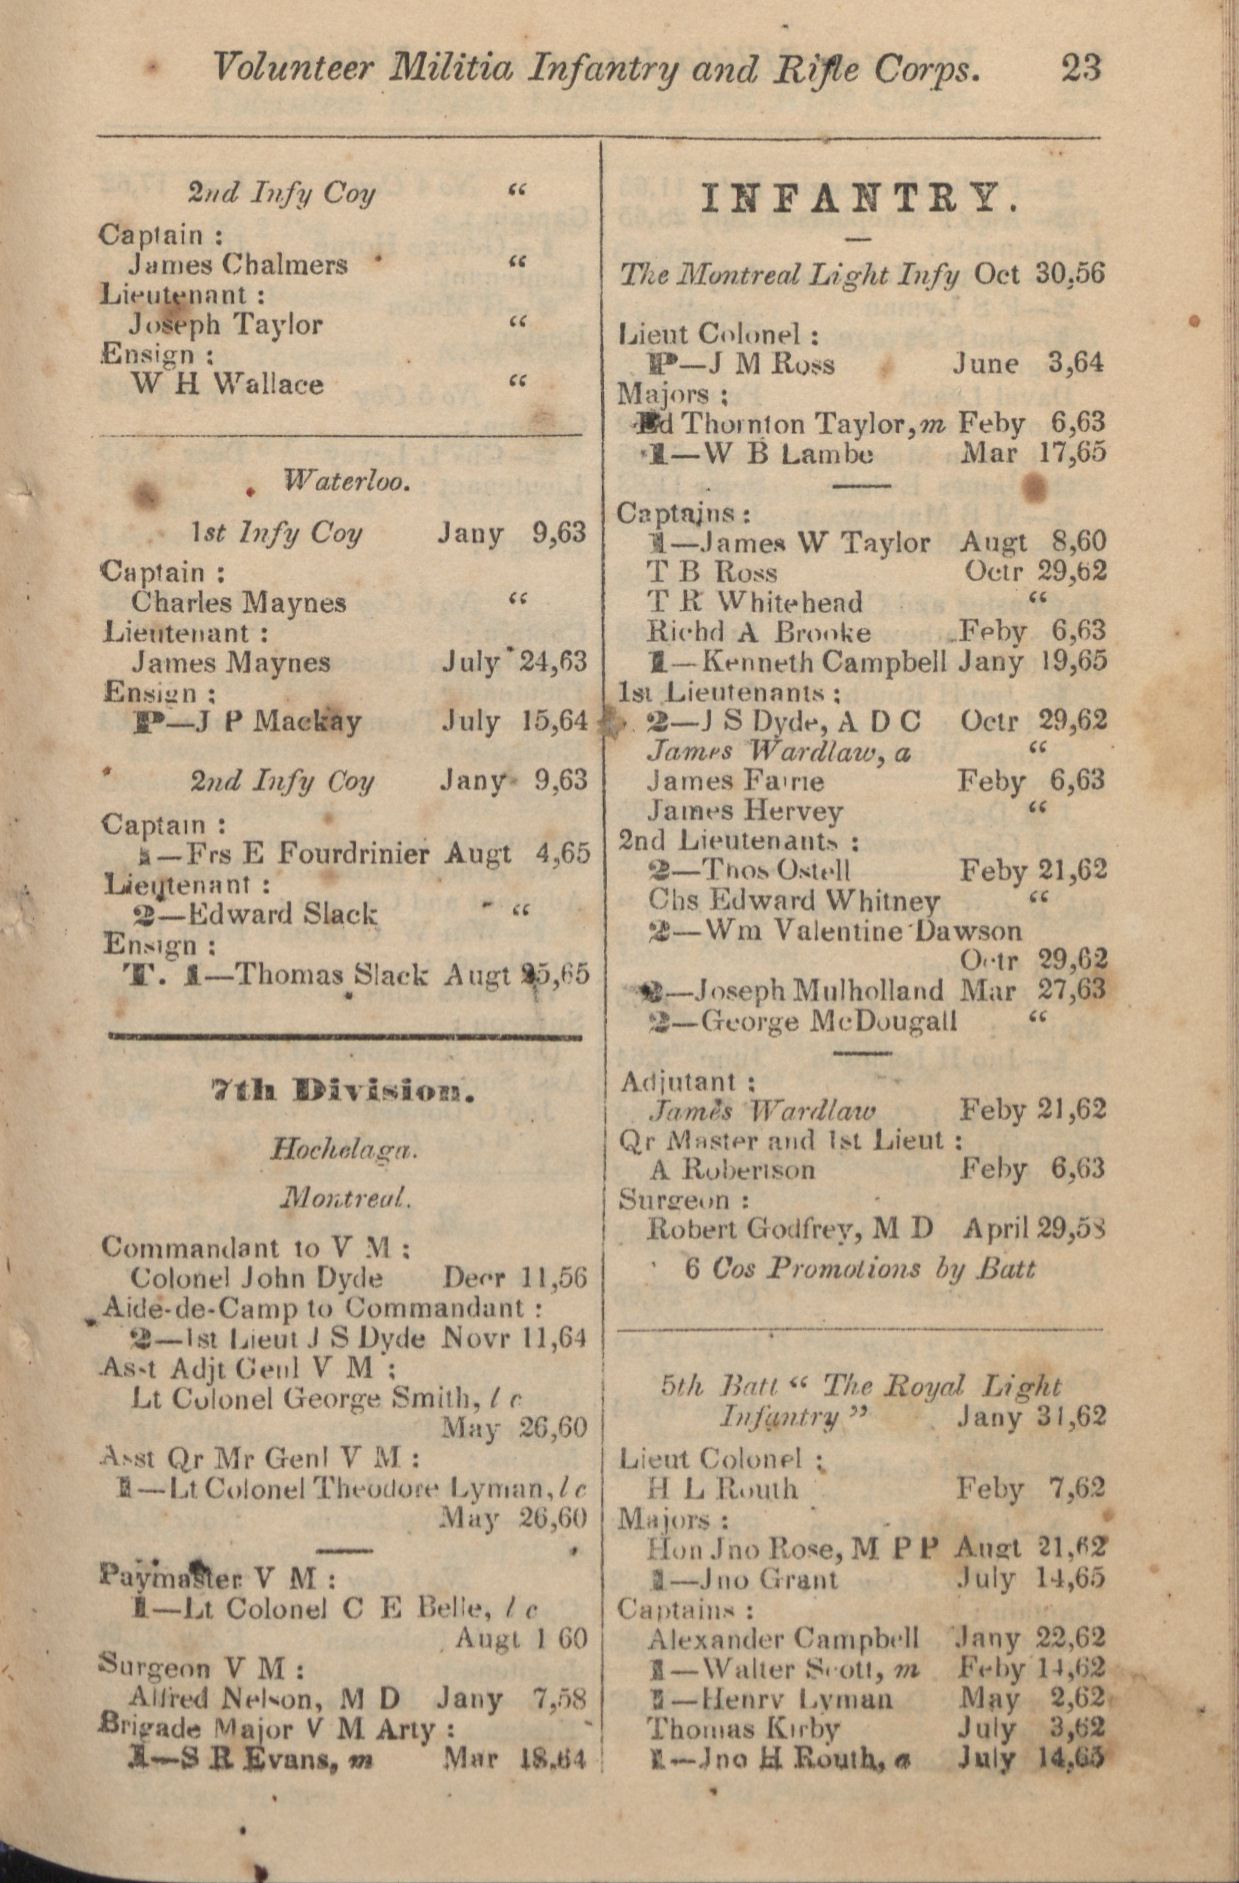 Volunteer Militia Infantry and Rifle Corps. 23
2nd Infy Coy “
Captain :
James Chalmers “
Lieutenant :
Joseph Taylor “
Ensign :
W H Wallace “
Waterloo.
1st Infy Coy Jany 9,63
Captain :
Charles Maynes “
Lieutenant :
James Maynes July 24,63
Ensign :
P—J P Mackay July 15,64
2nd Infy Coy Jany 9,63
Captain :
1—Frs E Fourdrinier Augt 4,65
Lieutenant :
2—Edward Slack “
Ensign :
T. 1—Thomas Slack Augt 25,65
7th Division.
Hochelaga.
Montreal.
Commandant to V M :
Colonel John Dyde Decr 11,56
Aide-de-Camp to Commandant :
2—1st Lieut J S Dyde Novr 11,64
Asst Adjt Genl V M :
Lt Colonel George Smith, l c
May 26,60
Asst Qr Mr Genl V M :
1—Lt Colonel Theodore Lyman, l c
May 26,60
Paymaster V M :
1—Lt Colonel C E Belle, l c
Augt 1 60
Surgeon V M :
Alfred Nelson, M D Jany 7,58
Brigade Major V M Arty :
1—S R Evans, m Mar 18,64
INFANTRY.
The Montreal Light Infy Oct 30,56
Lieut Colonel :
P—J M Ross June 3,64
Majors :
Ed Thornton Taylor, m Feby 6,63
1—W B Lambe Mar 17,65
Captains :
1—James W Taylor Augt 8,60
T B Ross Octr 29,62
T R Whitehead “
Richd A Brooke Feby 6,63
1—Kenneth Campbell Jany 19,65
1st Lieutenants :
2—J S Dyde, A D C Octr 29,62
James Wardlaw, a “
James Fairie Feby 6,63
James Hervey “
2nd Lieutenants :
2—Thos Ostell Feby 21,62
Chs Edward Whitney “
2—Wm Valentine Dawson
Octr 29,62
2—Joseph Mulholland Mar 27,63
2—George McDougall “
Adjutant :
James Wardlaw Feby 21,62
Qr Master and 1st Lieut :
A Robertson Feby 6,63
Surgeon :
Robert Godfrey, M D April 29,58
6 Cos Promotions by Batt
5th Batt “ The Royal Light
Infantry ” Jany 31,62
Lieut Colonel :
H L Routh Feby 7,62
Majors :
Hon Jno Rose, M P P Augt 21,62
1—Jno Grant July 14,65
Captains :
Alexander Campbell Jany 22,62
1—Walter Scott, m Feby 14,62
1—Henry Lyman May 2,62
Thomas Kirby July 3,62
1—Jno H Routh, a July 14,65